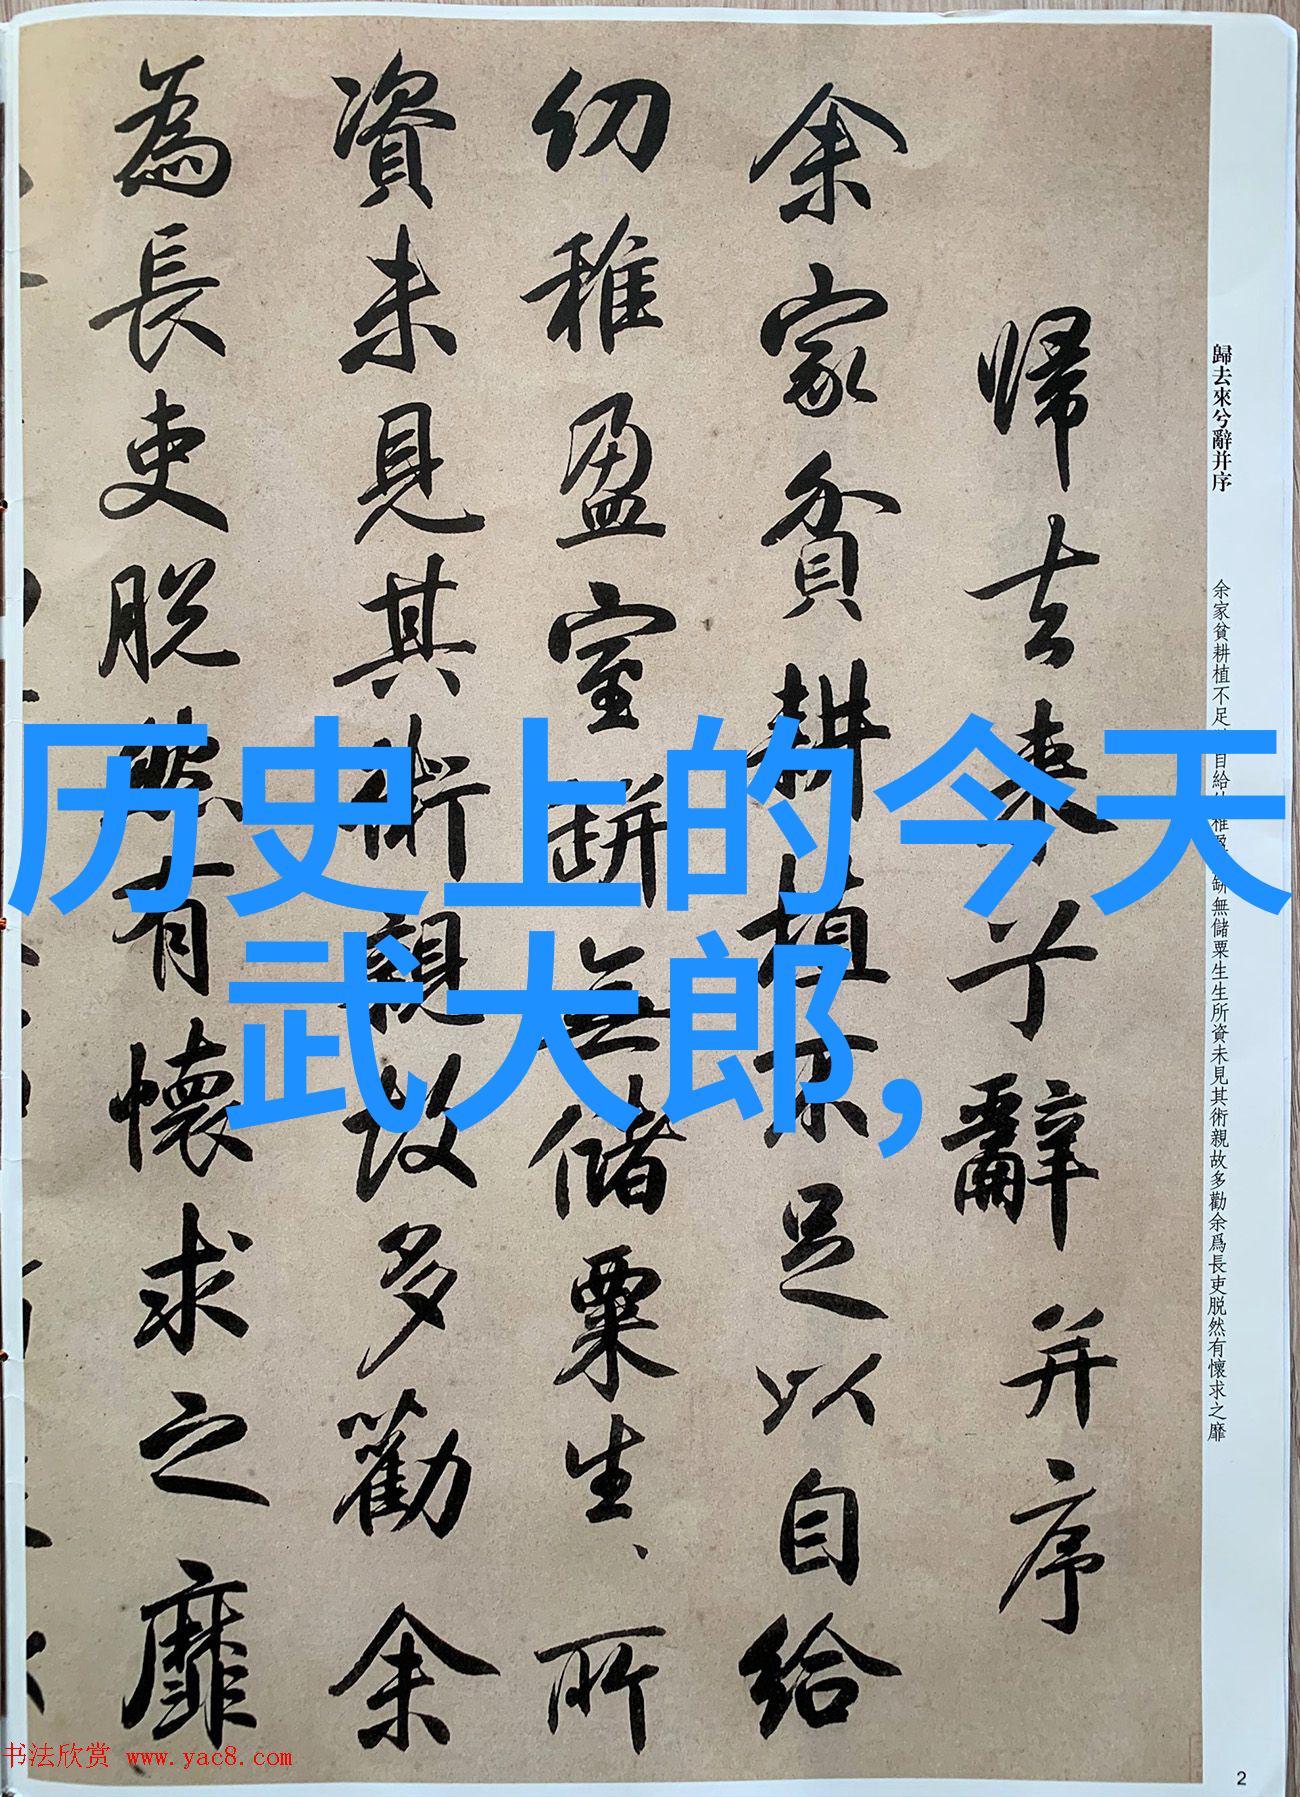 歸去來兮辭并序
余家貧耕植不足以自給
幼稚盈室缾無儲粟生生所
資未見其術親故多勸余
為長吏脱然有懷求之靡
歸去來兮辭并序
余家貧耕植不足 自給 稚 缾無儲粟生生所資未見其術親故多勸余爲長吏脱然有懷求之靡
历史上的今天
武大郎,
书法欣赏 www.yac8.com
2